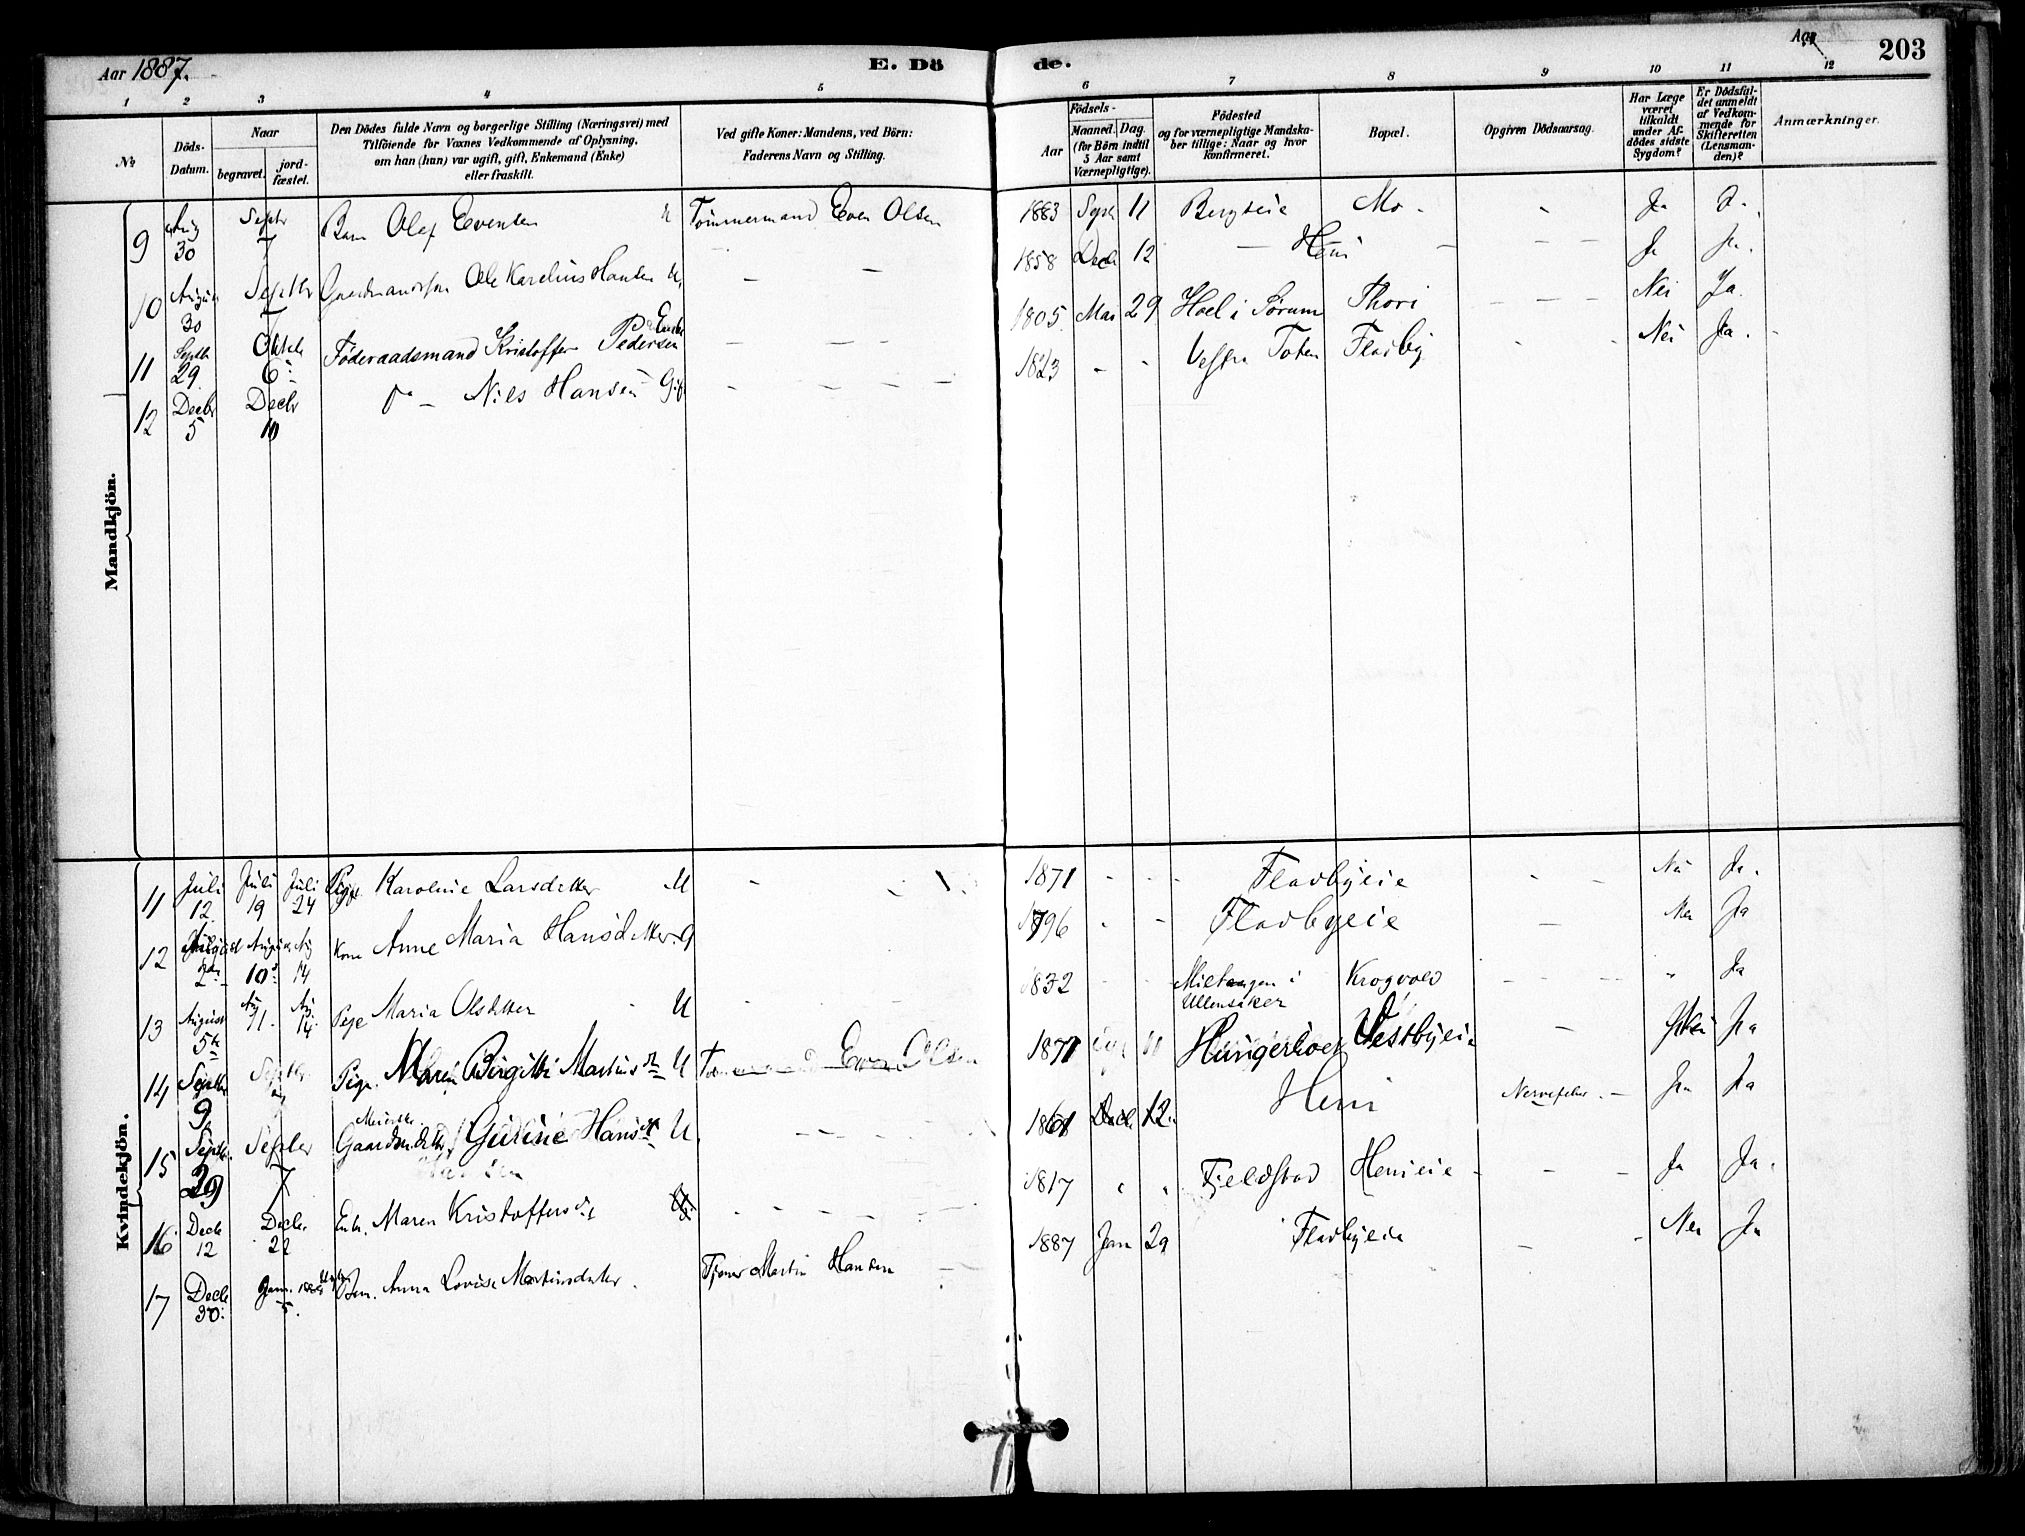 Aar 1887.
E. Dö
de.
Aar
203
1 2 3 4 5 6 7 8 9 10 11 12
No
Döds-Datum.
Naar
begravet.
jord-fæstet.
Den Dödes fulde Navn og borgerlige Stilling (Næringsvei) med
Tilföiende for Voxnes Vedkommende af Oplysning,
om han (hun) var ugift, gift, Enkemand (Enke)
eller fraskilt.
Ved gifte Koner: Mandens, ved Börn:
Faderens Navn og Stilling.
Födsels-
Aar
Maaned. Dag.
(for Börn indtil
5 Aar samt
Værnepligtige).
Födested
og for værnepligtige Mandska-
ber tillige: Naar og hvor
konfirmeret.
Bopæl.
Opgiven Dödsaarsag.
Har Læge
været
tilkaldt
under Af-
dödes sidste
Sygdom?
Er Dödsfal-
det anmeldt
af Vedkom-
mende for
Skifteretten
(Lensman-
den)?
Anmærkninger.
Mandkjön.
9 Aug 30 Septr 7 Barn Olaf Evensen U Tømmermand Even Olsen 1883 Sept 11 Bergseie Mo Ja
10 August 30 Septbr 7 Gaardmandssøn Ole Karelius Hansen U 1858 Decb 12 Heni Ja Ja
11 Septb 29 Oktob 6 Føderaadsmand Kristoffer Pedersen Enke 1805 Mai 29 Hoel i Sørum Thori Nei Ja
12 Decbr 5 Decbr 10 Do Niels Hansen Gift 1823 Vestre Toten Fladby Nei Ja
Kvindekjön.
11 Juli 12 Juli 19 Juli 24 Pige Karoline Larsdatter U 1871 Fladbyeie Nei Ja
12 August 2den August 10 Aug 14 Kone Anne Maria Hansdatter G 1796 Fladbyeie Nei Ja
13 August 5te Aug 11 Aug 14 Pige Maria Olsdatter U 1832 i Ullensaker Krogvold Ja
14 Septbr 9 Septbr Pige Maren Birgitte Martinsd. U Even Olsen 1871 Hungerhoel Vestbyeie Nei Ja
15 Septbr 29 Septbr 7 Gaardmdatter Gurine Hansd U 1861 Decb 12 Heni Nervefeber Ja Ja
16 Decb 12 Decbr 22 Enke Maren Kristoffersd. 1817 Fjeldstad Henieie Ja Ja
17 Decb 30 Janr. 1888 5 Barn Anna Lovise Martinsdatter Tjener Martin Hansen 1887 Jan 29 Fladbyeie Nei Ja